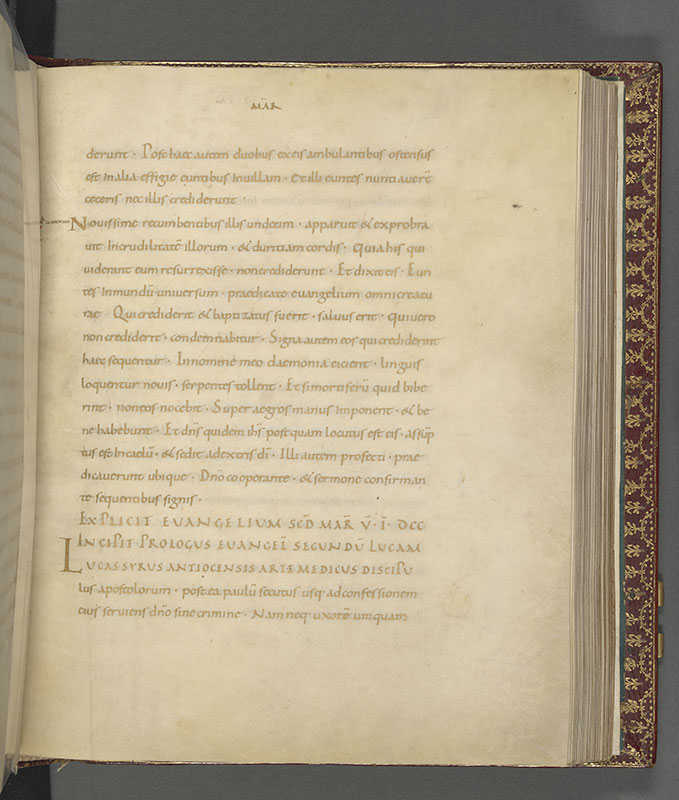 MAR
derunt · Post haec autem duobus ex eis ambulantibus ostensus
est in alia effigie euntibus in uillam · Et illi euntes nuntiauer̄t
ceteris nec illis crediderunt ·
Nouissime recumbentibus illis undecim · apparuit & exprobra
uit incrudilitatē illorum · & duritiam cordis · Quia his qui
uiderant eum resurrexisse · non crediderunt · Et dixit eis · Eun
tes in mundū uniuersum · praedicate euangelium omni creatu
rae · Qui crediderit & baptizatus fuerit · saluus erit · qui uero
non crediderit · condemnabitur · Signa autem eos qui crediderint
haec sequentur · In nomine meo daemonia eicient · linguis
loquentur nouis · serpentes tollent · Et si mortiferū quid bibe
rint · non eos nocebit · Super aegros manus imponent · & be
ne habebunt · Et dn̄s quidem ih̄s post quam locutus est eis · assūp
tus est in caelū · & sedit adextris dī · Illi autem profecti · prae
dicauerunt ubique · Dn̄o cooperante · & sermone confirman
te sequentibus signis ·
EXPLICIT EVANGELIUM SCD̄ MAR̄ V̄ · Ī · DCC
INCIPIT PROLOGUS EUANGEL̄ SECUNDŪ LUCAM
LUCAS SYRUS ANTIOCENSIS ARTE MEDICUS DISCIPU
lus apostolorum · postea paulū secutus usq· ad confessionem
eius seruiens dn̄o sine crimine · Nam neq· uxorē umquam